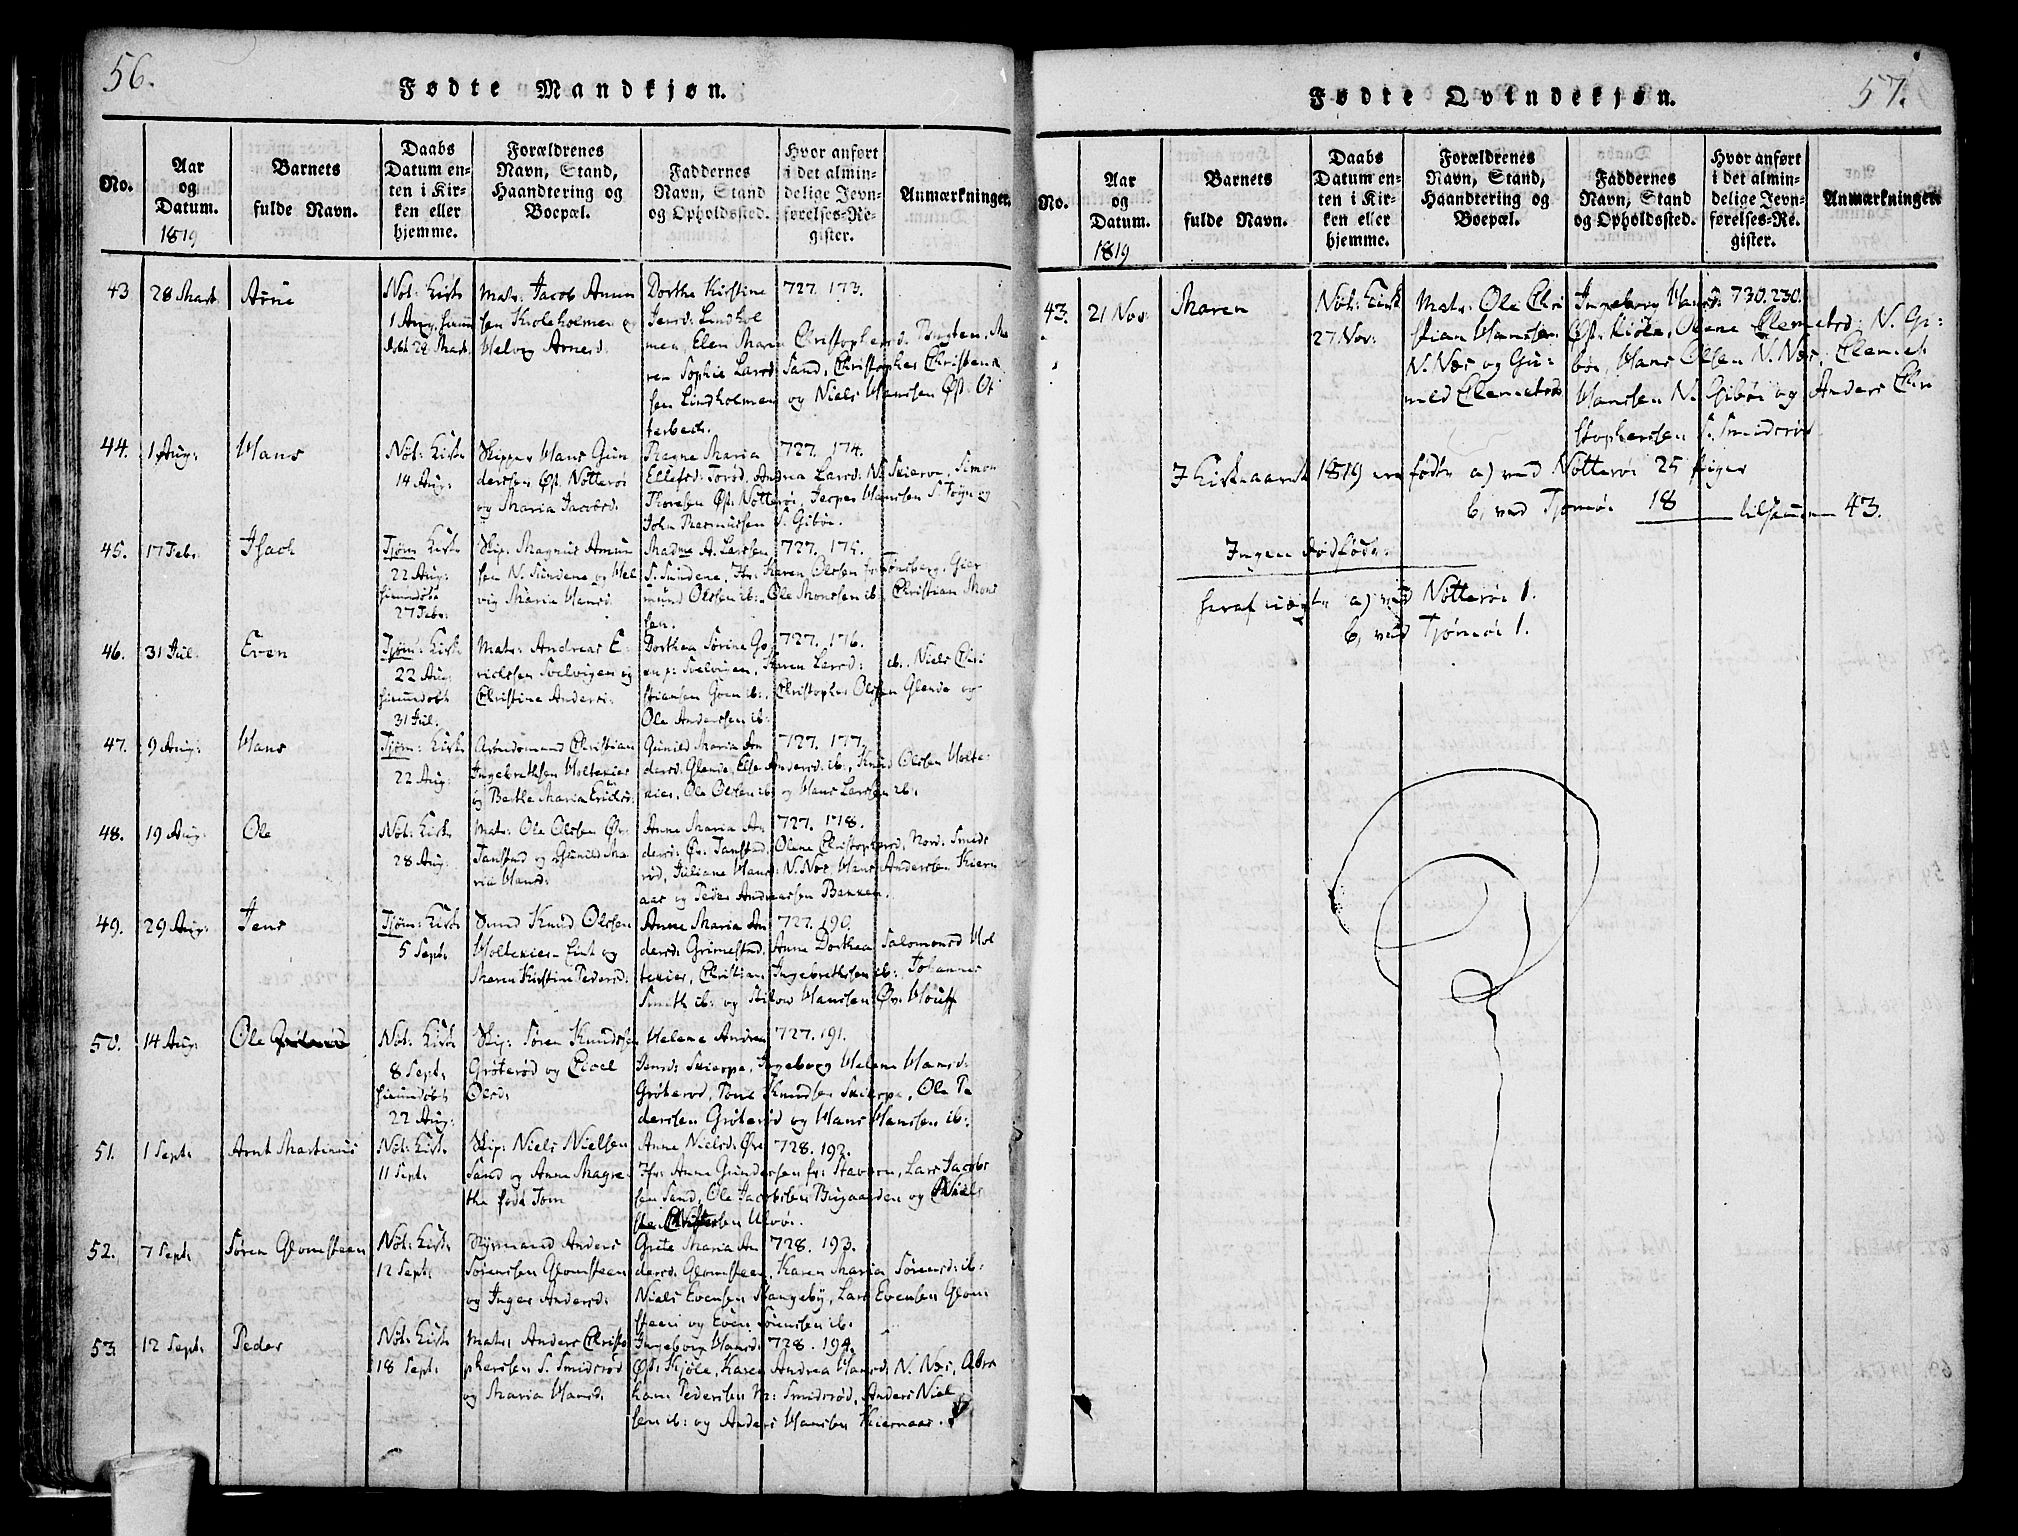 56.
Fødte Mandkjøn.
No.
Aar
og
Datum.
1819
Barnets
fulde Navn.
Daabs
Datum en-
ten i Kir-
ken eller
hjemme.
Forældrenes
Navn, Stand,
Haandtering og
Boepæl.
Faddernes
Navn, Stand
og Opholdssted.
Hvor anført
i det almin-
delige Jevn-
førelses-Re-
gister.
Anmærkninger.
43
28 Mart.
Arne
Nøt: Kirke
1 Aug.
døbt 28 Mart.
Matr: Jacob Amun
sen Kroleholmen og
Helvig Arnesd:
Dorthe Kirstine 727. 173.
Jensd: Lindhol
men, Elen Maria Christophersd.
ren Sophie Larsd: Sand, Christopher Christen
sen Lindholmen og Niels Hansen Øst: Ø
terbech.
44.
1 Aug:
Hans
Nøt: Kirke
14 Aug:
Skipper Hans Gun
dersen Øst: Nøtterøe
og Maria Jacobsd.
Ragne Maria 727. 174.
Ellefsd: Torød, Andrea Larsd: N. Skierve, Simon
Thoresen Øst: Nøtterøe, Jesper Hanssen S. Toyn og
John Rasmussen S. Gibøe.
45.
17 Febr.
Isach
Tjøm: Kirke
22 Aug:
hiemmedøbt
27 Febr.
Skip. Magnus Amun
sen N. Sundene og Hel
vig Maria Hansd:
Madme A. Larssen 727. 175.
S. Sundene, Jfr: Karen Olssen fr: Tønsberg, Gier
mund Olssen ib: Ole Monssen ib: Christian Mons
sen.
46.
31 Jul:
Even
Tjøm: Kirke
22 Aug:
hiemmedøbt
31 Jul:
Matr: Andreas E-
richsen Solvigen og
Christine Andersd:
Dorthea Sørine Go 727. 176.
Solvigen, Karen Larsd: ib. Niels Chri
stiansen Goen ib:, Christopher Olssen Glende og
Ole Anderssen ib:
47.
9 Aug:
Hans
Tjøm: Kirke
22 Aug:
Christian
Ingebrethsen Holtekier
og Berthe Maria Erichsd:
Gunild Maria An 727. 177.
dersd: Glende, Else Andersd: ib., Knud Olssen Holte-
kier, Ole Olssen ib. og Hans Larssen ib:
48.
19 Aug:
Ole
Nøt: Kirke
28 Aug:
Matr: Ole Olssen Øv.
Tanstad og Gunild Ma-
ria Hansd:
Anne Maria An 727. 178.
dersd: Øv. Tanstad, Olene Christophersd. Nord. Smids
rød, Juliane Hansd: N. Næs, Hans Anderssen Kiern
aas og Peder Andreassen Bakken.
49.
29 Aug:
Jens
Tjøm: Kirke
5 Septr.
Knud Olssen
Holtekier og
Maren Kirstine Pedersd:
Anne Maria An 727. 190.
dersd: Grimestad, Anne Dorthea Salomonsd Hol
tekier, Christian Ingebrethsen ib: Johannes
Smith ib: og Hanssen Øv. Houff
50.
14 Aug:
Ole
Nøt: Kirke
8 Septr.
hiemmedøbt
22 Aug:
Skip: Søren Knudssen
Grøterød og
Olsd:
Helene Andrea 727. 191.
Jensd: Skierpe, Ingeborg Helene Hansd:
Grøterød, Knudsen Skierpe, Ole Pe
derssen Grøterød og Hans Hanssen ib:
51.
1 Septr.
Arnt Martinius
Nøt: Kirke
11 Septr.
Skip: Niels Nielsen
Sand og Anne Magre-
the født Tom
Anne Nielsd: Øv. 728. 192.
Jfr: Anne Gundersen fr: Stavern, Lars Jacob
sen Sand, Ole Jacobsen Bugaarden og Niels
Christensen Ulvøe.
52.
7 Septr.
Søren Glomsteen
Nøt: Kirke
12 Septr.
Anders
Sørensen Glomsteen
og Inger Andersd:
Grete Maria An 728. 193.
dersd: Glomsteen, Karen Maria Sørensd: ib:
Niels Evensen Stangeby, Lars Evensen Glom
steen og Even Sørensen ib:
53.
12 Septr.
Peder
Nøt: Kirke
18 Septr.
Matr: Anders Christo
phersen S. Smidsrød
og Maria Hansd:
Ingeborg Hansd: 728. 194.
Øst: Kjøle, Karen Andrea Hansd: N. Næs, Abra
ham Pedersen N: Smidsrød, Anders Niel
sen ib: og Anders Hansen Kiernaas.
57.
Fødte Qvindekjøn.
No.
Aar
og
Datum.
1819
Barnets
fulde Navn.
Daabs
Datum en-
ten i Kir-
ken eller
hjemme.
Forældrenes
Navn, Stand,
Haandtering og
Boepæl.
Faddernes
Navn, Stand
og Opholdssted.
Hvor anført
i det almin-
delige Jevn-
førelses-Re-
gister.
Anmærkninger.
43.
21 Nov:
Maren
Nøt: Kirk
27 Nov:
Matr: Ole Chri
stian Hanssen
N. Næs og Gu-
nild Clemetsd:
Ingeborg Hansd: 730. 230.
Øst. Kiøle, Olene Clemetsd: N. Gi-
bøe, Hans Olsen N. Næs, Clemet
Hanssen N. Gibøe og Anders Chri
stophersen S. Smidsrød
I Kirkeaaret 1819 ere fødte a) ved Nøtterøe 25 Piger
b, ved Tjømøe 18 tilsammen 43.
Ingen dødfødte.
heraf uægte a) ved Nøtterøe 1.
b, ved Tjømøe 1.